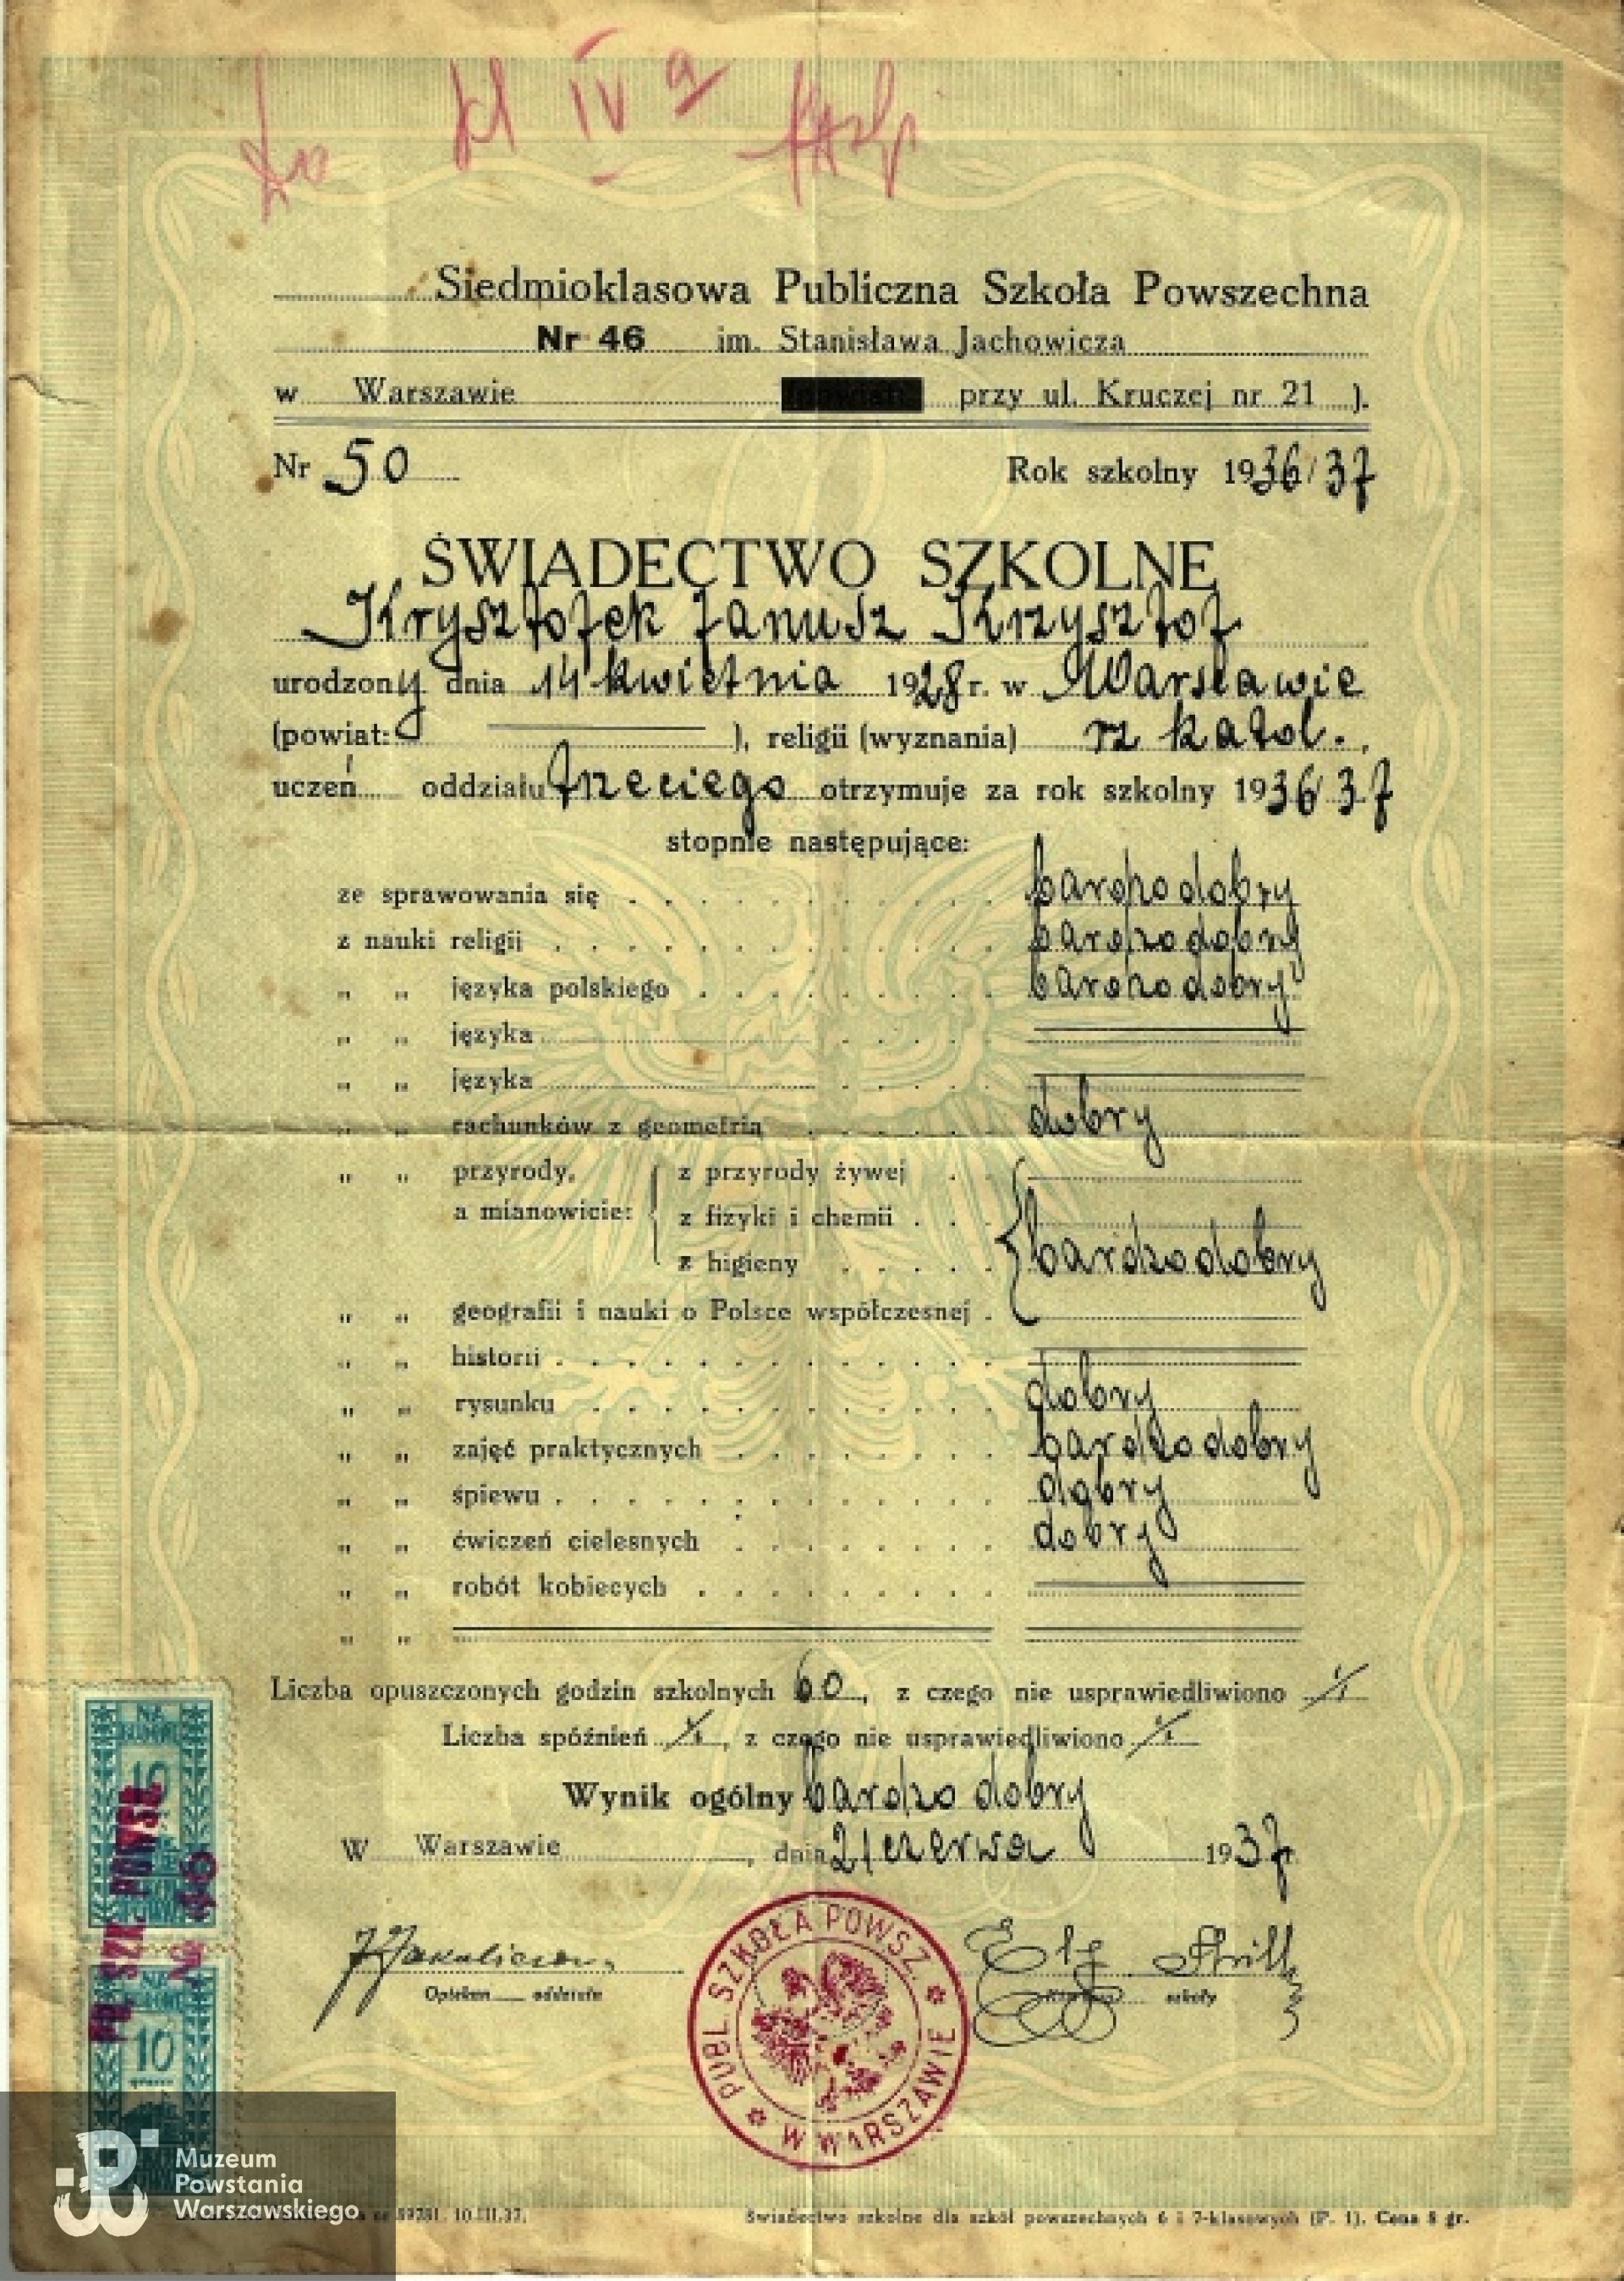 Do kl IV a
Siedmioklasowa Publiczna Szkoła Powszechna
Nr 46 im. Stanisława Jachowicza
w Warszawie przy ul. Kruczej nr 21 ).
Nr 50 Rok szkolny 1936/37
ŚWIADECTWO SZKOLNE
Krysztofek Janusz Krzysztof
urodzony dnia 14 kwietnia 1928 r. w Warszawie
(powiat: ), religii (wyznania) rz katol.,
uczeń oddziału trzeciego otrzymuje za rok szkolny 1936/37
stopnie następujące:
ze sprawowania się . . . . . . . . . . bardzo dobry
z nauki religij . . . . . . . . . . . . bardzo dobry
„ „ języka polskiego . . . . . . . . . bardzo dobry
„ „ języka . . . . .
„ „ języka . . . . .
„ „ rachunków z geometrią . . . . . . dobry
„ „ przyrody, z przyrody żywej . .
a mianowicie: z fizyki i chemii . . .
z higieny . . . . . bardzo dobry
„ „ geografii i nauki o Polsce współczesnej .
„ „ historii . . . . . . . . . . . . .
„ „ rysunku . . . . . . . . . . . . dobry
„ „ zajęć praktycznych . . . . . . . . bardzo dobry
„ „ śpiewu . . . . . . . . . . . . . dobry
„ „ ćwiczeń cielesnych . . . . . . . . dobry
„ „ robót kobiecych . . . . . . . . .
„ „
Liczba opuszczonych godzin szkolnych 60, z czego nie usprawiedliwiono
Liczba spóźnień , z czego nie usprawiedliwiono
Wynik ogólny bardzo dobry
W Warszawie, dnia 21 czerwca 1937 r.
Opiekun oddziału
szkoły
PUBL. SZKOŁA POWSZ. W WARSZAWIE
NA
10
SZK. POWSZ.
№ 46
10
Muzeum
Powstania
Warszawskiego
10.III.37.
Świadectwo szkolne dla szkół powszechnych 6 i 7-klasowych (P. 1). Cena 8 gr.